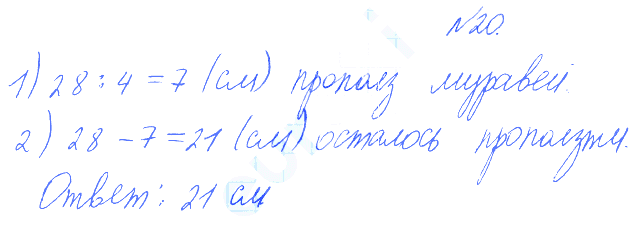 №20.
1) 28 : 4 = 7 (см) прополз муравей.
2) 28 - 7 = 21 (см) осталось проползти.
Ответ: 21 см